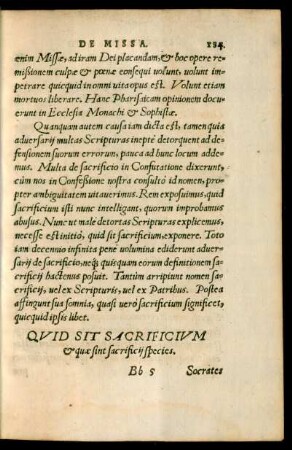 DE MISSA. 184.
enim Missæ, ad iram Dei placandam, & hoc opere re⸗
missionem culpæ & pœnæ consequi uolunt, uolunt im⸗
petrare quicquid in omni uita opus est. Volunt etiam
mortuos liberare. Hanc Pharisaicam opinionem docu⸗
erunt in Ecclesia Monachi & Sophistæ.
Quanquam autem causa iam dicta est, tamen quia
aduersarij multas Scripturas ineptè detorquent ad de⸗
fensionem suorum errorum, pauca ad hunc locum adde⸗
mus. Multa de sacrificio in Confutatione dixerunt,
cùm nos in Confeßione nostra consultò id nomen, pro⸗
pter ambiguitatem uitauerimus. Rem exposuimus, quid
sacrificium isti nunc intelligant, quorum improbamus
abusus. Nunc ut malè detortas Scripturas explicemus,
necesse est initiò, quid sit sacrificium exponere. Toto
iam decennio infinita penè uolumina ediderunt aduer⸗
sarij de sacrificio, neq́; quisquam eorum definitionem sa⸗
crificij hactenus posuit. Tantùm arripiunt nomen sa⸗
crificij, uel ex Scripturis, uel ex Patribus. Postea
affingunt sua somnia, quasi uerò sacrificium significet,
quicquid ipsis libet.
QVID SIT SACRIFICIVM
& quæ sint sacrificij species.
Bb 5 Socrates